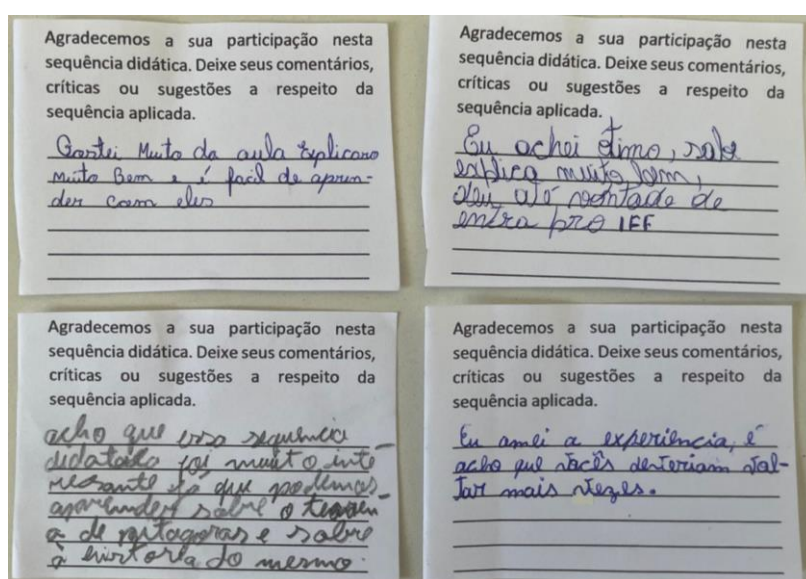 Agradecemos a sua participação nesta
sequência didática. Deixe seus comentários,
críticas ou sugestões a respeito da
sequência aplicada.
Gostei Muito da aula Explicano
Muito Bem e é facil de apren-
der com eles
Agradecemos a sua participação nesta
sequência didática. Deixe seus comentários,
críticas ou sugestões a respeito da
sequência aplicada.
Eu achei ótimo, sabe
explica muito bem,
deu até vontade de
entra pro IFF
Agradecemos a sua participação nesta
sequência didática. Deixe seus comentários,
críticas ou sugestões a respeito da
sequência aplicada.
acho que essa sequencia
foi muito inte
ressante já que podemos
aprender sobre o teorem
a de pitagoras e sobre
a do mesmo.
Agradecemos a sua participação nesta
sequência didática. Deixe seus comentários,
críticas ou sugestões a respeito da
sequência aplicada.
Eu amei a experiência, é
acho que vocês deveriam vol-
tar mais vezes.